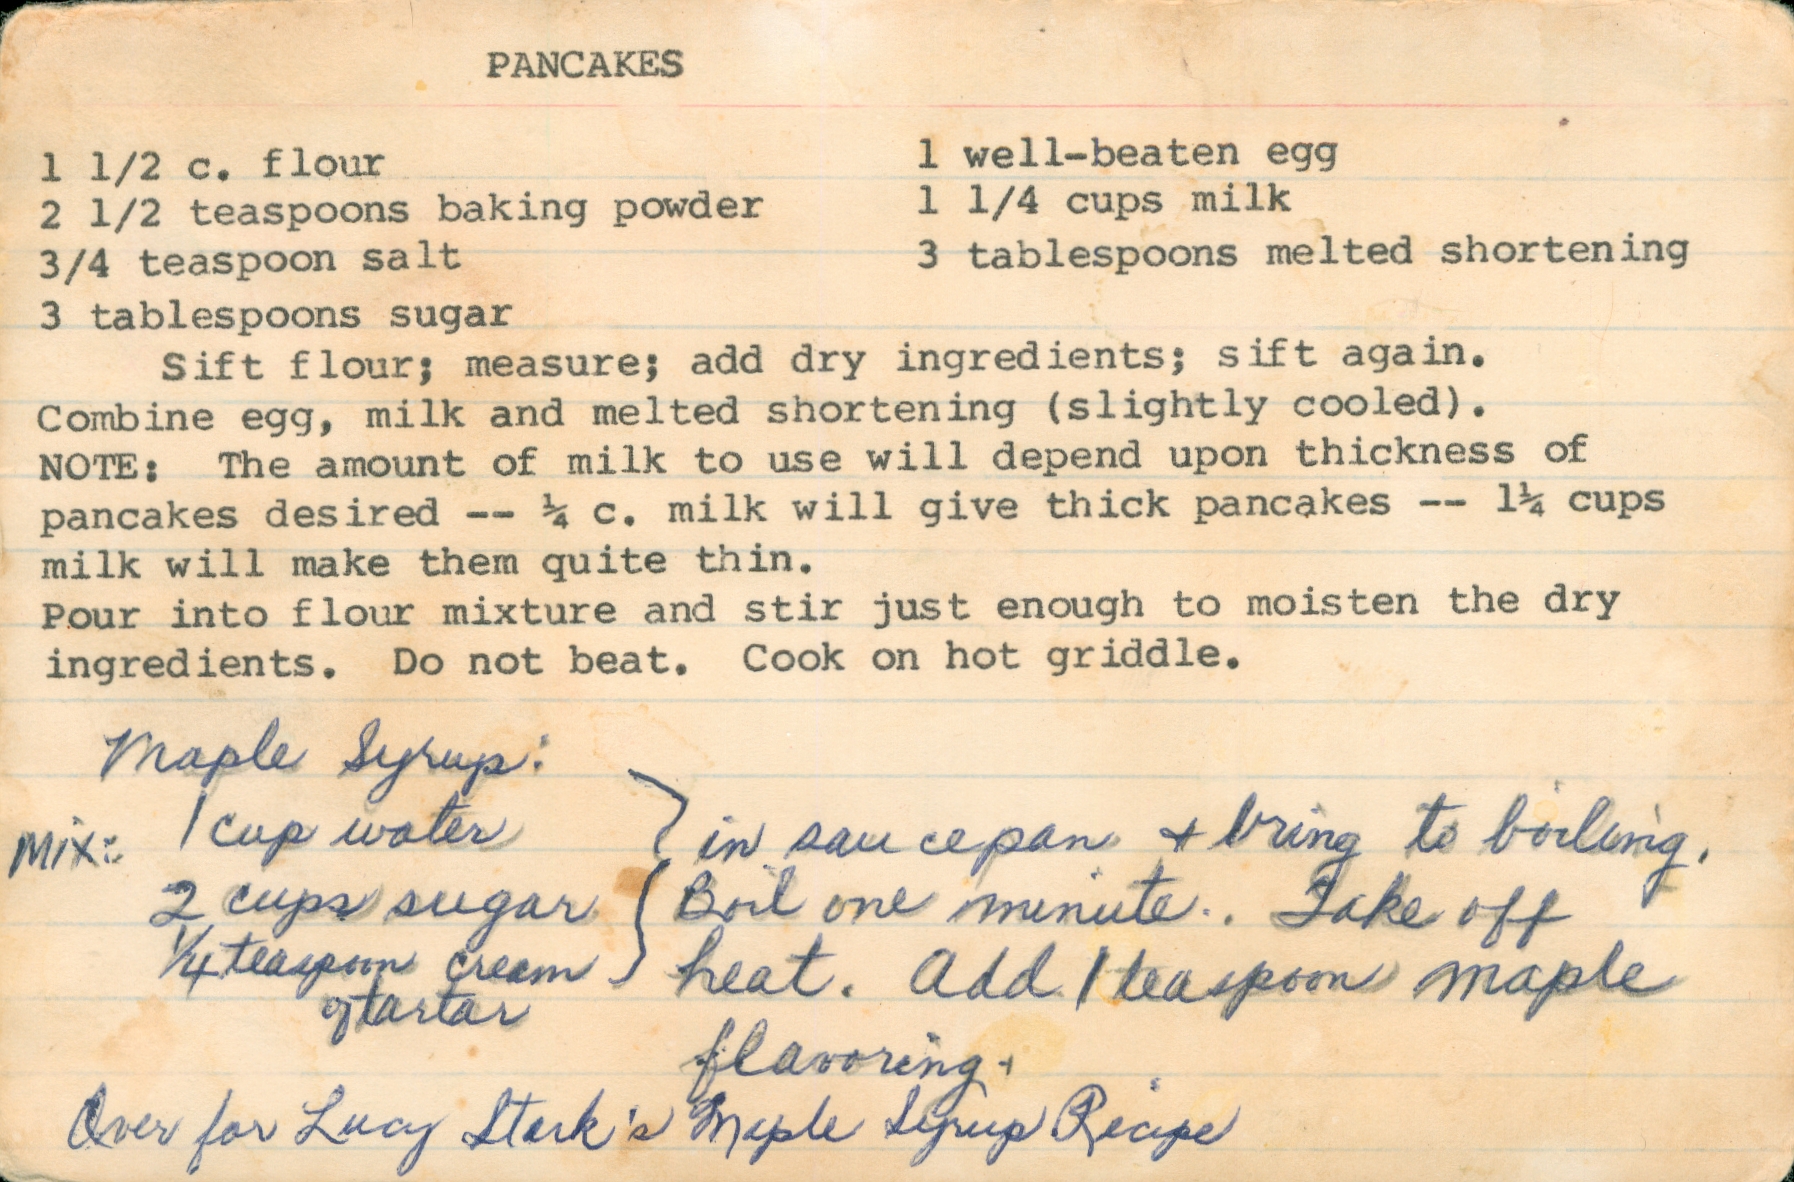 PANCAKES
1 1/2 c. flour
2 1/2 teaspoons baking powder
3/4 teaspoon salt
3 tablespoons sugar
1 well-beaten egg
1 1/4 cups milk
3 tablespoons melted shortening
Sift flour; measure; add dry ingredients; sift again.
Combine egg, milk and melted shortening (slightly cooled).
NOTE: The amount of milk to use will depend upon thickness of
pancakes desired -- ¼ c. milk will give thick pancakes -- 1¼ cups
milk will make them quite thin.
Pour into flour mixture and stir just enough to moisten the dry
ingredients. Do not beat. Cook on hot griddle.
Maple Syrup:
Mix: 1 cup water
2 cups sugar
1/4 teaspoon cream
of tartar
in saucepan + bring to boiling.
Boil one minute. Take off
heat. Add 1 teaspoon maple
flavoring.
Over for Lucy Stark's Maple Syrup Recipe